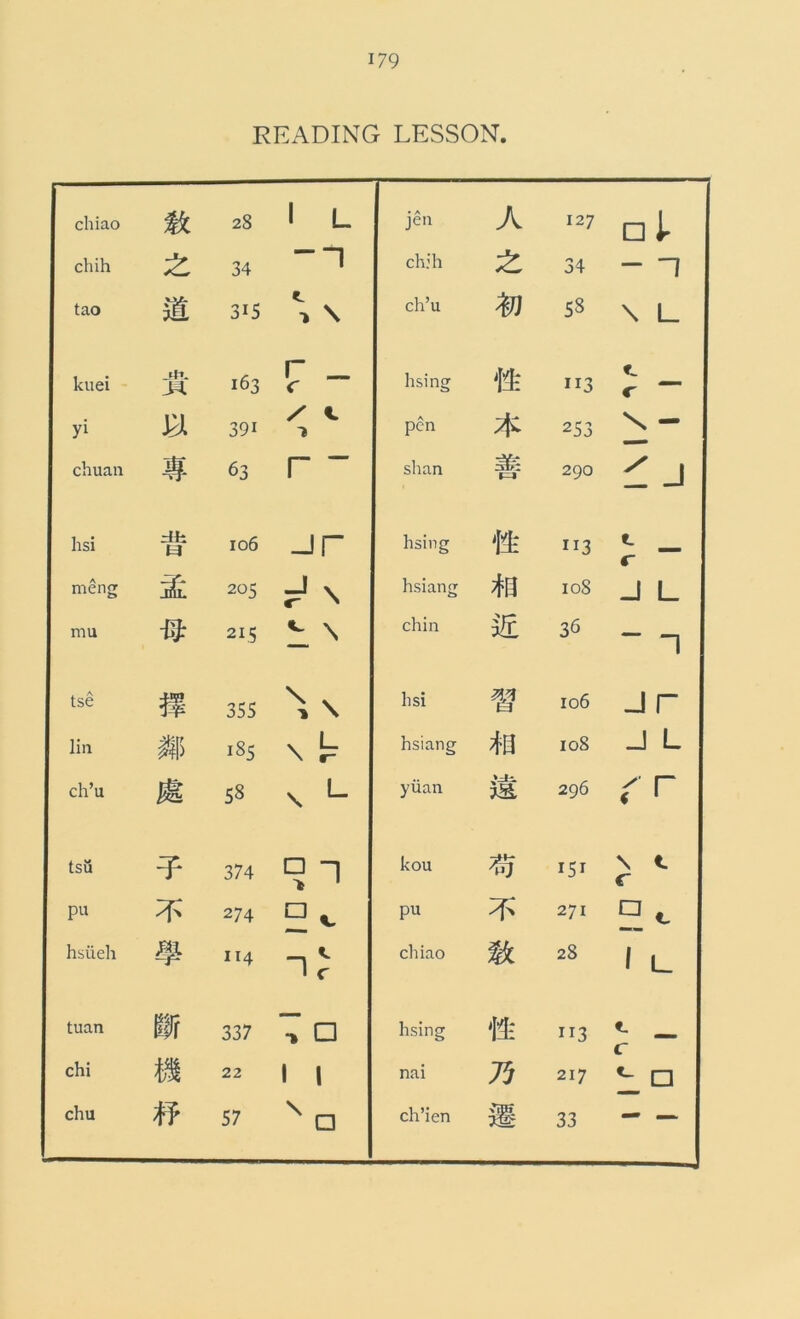 179
READING LESSON.
chiao 敎 28
chih 之 34
tao 道 315
kuei 貴 163
yi 以 391
chuan 專 63
hsi 昔 106
mêng 孟 205
mu 母 215
tsê 擇 355
lin 鄰 185
ch’u 處 58
tsŭ 子 374
pu 不 274
hsüeh 學 114
tuan 斷 337
chi 機 22
chu 杼 57
jên 人 127
chih 之 34
ch’u 初 58
hsing 性 113
pên 本 253
shan 善 290
hsing 性 113
hsiang 相 108
chin 近 36
hsi 習 106
hsiang 相 108
yüan 遠 296
kou 苟 151
pu 不 271
chiao 敎 28
hsing 性 113
nai 乃 217
ch’ien 遷 33